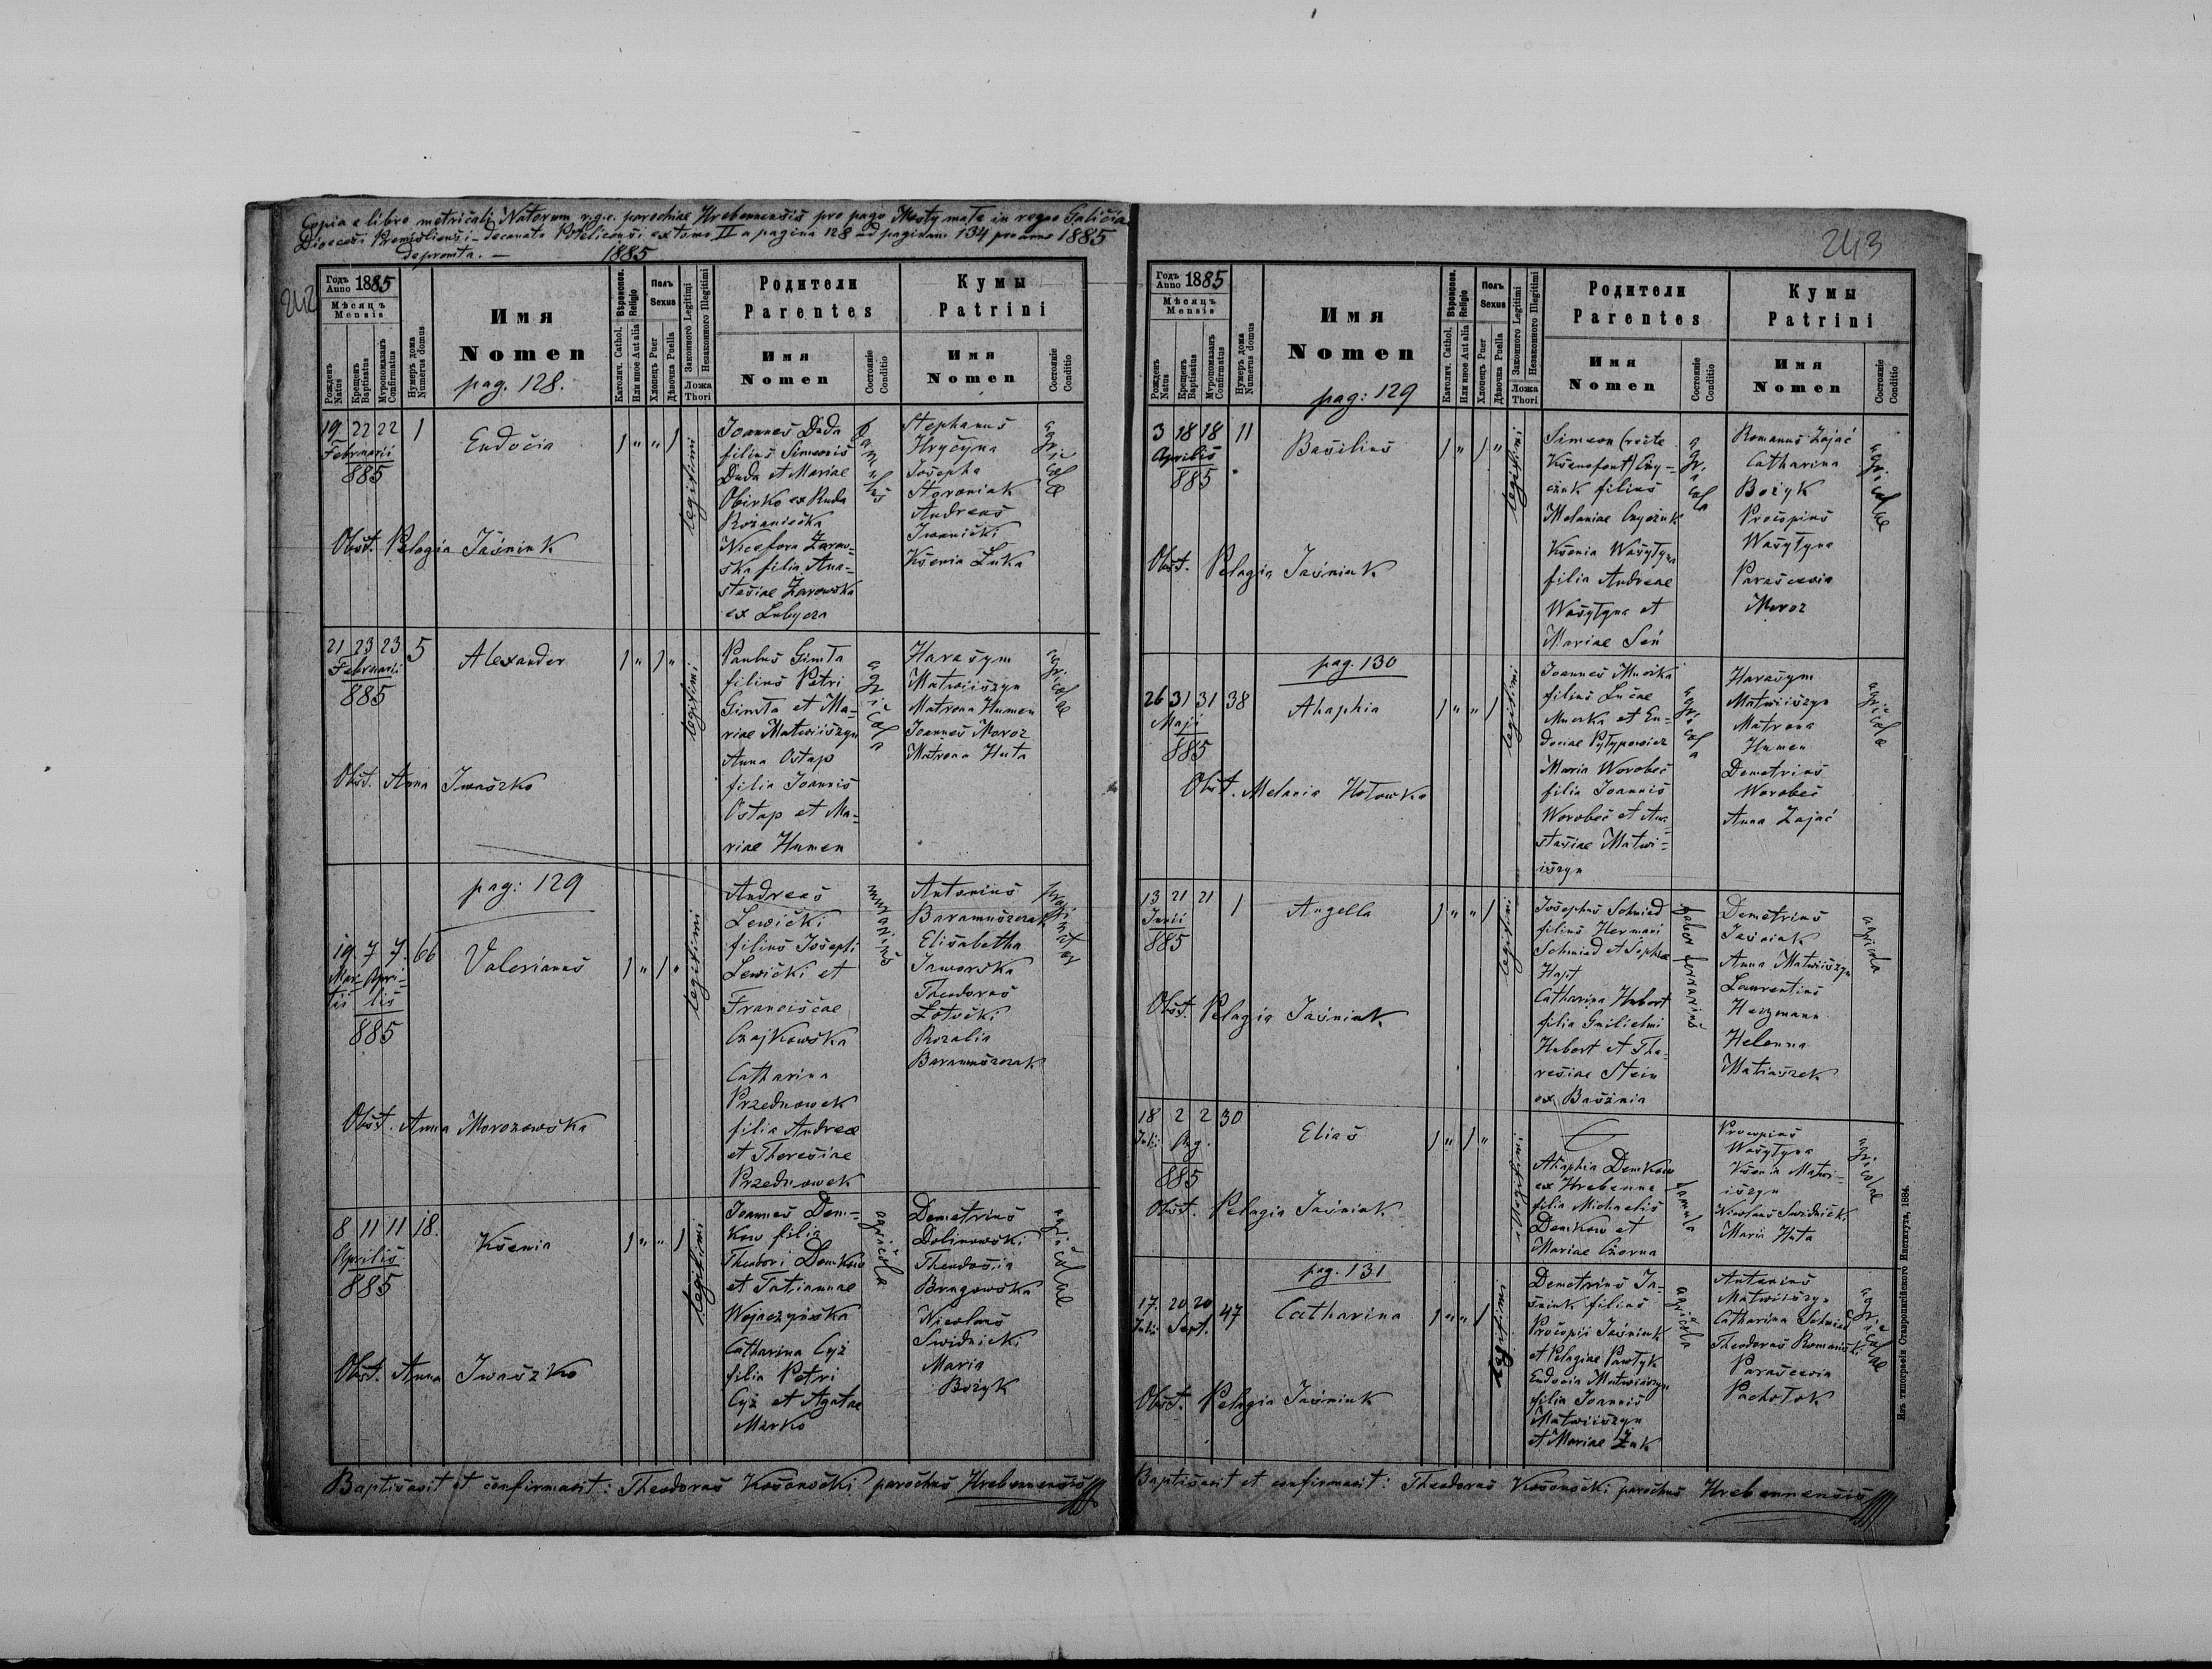 Copia e libro metricali Natorum r.g.c. parochiae Hrebennensis pro pago Mosty małe in regno Galiciae
Dioecesi Premisliensi - decanatu Potelicensi ex tomo II a pagina 128 ad paginam 134 pro anno 1885
depromta. — 1885
242
Годъ Anno 1885
Мѣсяцъ Mensis
Рожденъ Natus
Крещенъ Baptisatus
Мѵропомазанъ Confirmatus
Нумеръ дома Numerus domus
Имя
Nomen
pag. 128.
Вѣроиспов. Religio
Католич. Cathol.
Или иное Aut alia
Полъ Sexus
Хлопецъ Puer
Дѣвочка Puella
Законного Legitimi
Незаконного Illegitimi
Ложа
Thori
Родители
Parentes
Имя
Nomen
Состоянiе Conditio
Кумы
Patrini
Имя
Nomen
Состоянiе Conditio
19 22 22 1
Februarii
885
Eudocia
1 " " 1
legitimi
Joannes Duda
filius Simeonis
Duda et Mariae
Obirko ex Ruda
Rożaniecka
Nicefora Żarow-
ska filia Ana-
stasiae Żarowska
ex Lubycza
famulus
Stephanus
Hryčyna
Josepha
Storoniak
Andreas
Iwanicki
Ksenia Łuka
agricolae
Obst. Pelagia Jaśniuk
21 23 23 5
Februarii
885
Alexander
1 " 1 "
legitimi
Paulus Gimta
filius Petri
Gimta et Ma-
riae Matwiiszyn
Anna Ostap
filia Joannis
Ostap et Ma-
riae Humen
agricola
Harasym
Matwiiszyn
Matrona Humen
Joannes Moroz
Matrona Huta
agricolae
Obst. Anna Iwaszko
pag: 129
19. 7 7. 66
Mar- Apri-
tii lis
885
Valerianus
1 " 1 "
legitimi
Andreas
Lewicki
filius Josephi
Lewicki et
Franciscae
Czajkowska
Catharina
Przednowek
filia Andreae
et Theresiae
Przednowek
murarius
Antonius
Baramuszczak
Elisabetha
Jaworska
Theodorus
Łotocki
Rozalia
Baramuszczak
Obst. Anna Morozowska
8 11 11 18.
Aprilis
885
Ksenia
1 " " 1
legitimi
Joannes Dem-
kow filia
Theodori Demkow
et Tatiannae
Wojaczyńska
Catharina Cyż
filia Petri
Cyż et Agatae
Marko
agricola
Demetrius
Dolinowski
Theodosia
Bragowska
Nicolaus
Swidnicki
Maria
Bożyk
agricolae
Obst. Anna Iwaszko
Baptisavit et confirmavit: Theodorus Kosonocki parochus Hrebennensis
243
Годъ Anno 1885
Мѣсяцъ Mensis
Рожденъ Natus
Крещенъ Baptisatus
Мѵропомазанъ Confirmatus
Нумеръ дома Numerus domus
Имя
Nomen
pag: 129
Вѣроиспов. Religio
Католич. Cathol.
Или иное Aut alia
Полъ Sexus
Хлопецъ Puer
Дѣвочка Puella
Законного Legitimi
Незаконного Illegitimi
Ложа
Thori
Родители
Parentes
Имя
Nomen
Состоянiе Conditio
Кумы
Patrini
Имя
Nomen
Состоянiе Conditio
3 18 18 11
Aprilis
885
Basilius
1 " 1 "
legitimi
Simeon (recte
Ksenofont) Cny-
czuk filius
Melaniae Cnyczuk
Ksenia Wasyłyna
filia Andreae
Wasyłyna et
Mariae Seń
agricola
Romanus Zając
Catharina
Bożyk
Procopius
Wasyłyna
Parascevia
Moroz
agricolae
Obst. Pelagia Jaśniuk
pag. 130
26 31 31 38
Maji
885
Ahaphia
1 " " 1
legitimi
Joannes Muczka
filius Lucae
Muczka et Eu-
dociae Pyłypowicz
Maria Worobec
filia Joannis
Worobec et Ana-
stasiae Matwi-
iszyn
agricola
Harasym
Matwiiszyn
Matrona
Humen
Demetrius
Worobec
Anna Zając
agricolae
Obst. Melania Hołowka
13 21 21 1
Junii
885
Angella
1 " " 1
legitimi
Josephus Schmied
filius Hermani
Schmied et Sophiae
Hapt
Catharina Hubert
filia Guilielmi
Hubert et The-
resiae Stein
ex Basznia
faber ferrarius
Demetrius
Jaśniuk
Anna Matwiiszyn
Laurentius
Herzmann
Helenna
Matiaszek
agricola
Obst. Pelagia Jaśniuk
18 2 2 30
Julii Aug.
885
Elias
1 " 1 "
illegitimi
Ahaphia Demkow
ex Hrebenne
filia Michaelis
Demkow et
Mariae Czorna
famula
Procopius
Wasyłyna
Ksenia Matwi-
iszyn
Nicolaus Swidnicki
Maria Huta
agricolae
Obst. Pelagia Jaśniuk
pag. 131
17. 20 20 47
Julii Sept.
Catharina
1 " " 1
legitimi
Demetrius Ja-
śniuk filius
Procopii Jaśniuk
et Pelagiae Pawłyk
Eudocia Matwiiszyn
filia Joannis
Matwiiszyn
et Mariae Żuk
agricola
Antonius
Matwiiszyn
Catharina Schmied
Theodorus Romanicki
Parascevia
Pachołok
agricolae
Obst. Pelagia Jaśniuk
Baptisavit et confirmavit: Theodorus Kosonocki parochus Hrebennensis
Изъ типографiи Ставропигiйского Института, 1884.